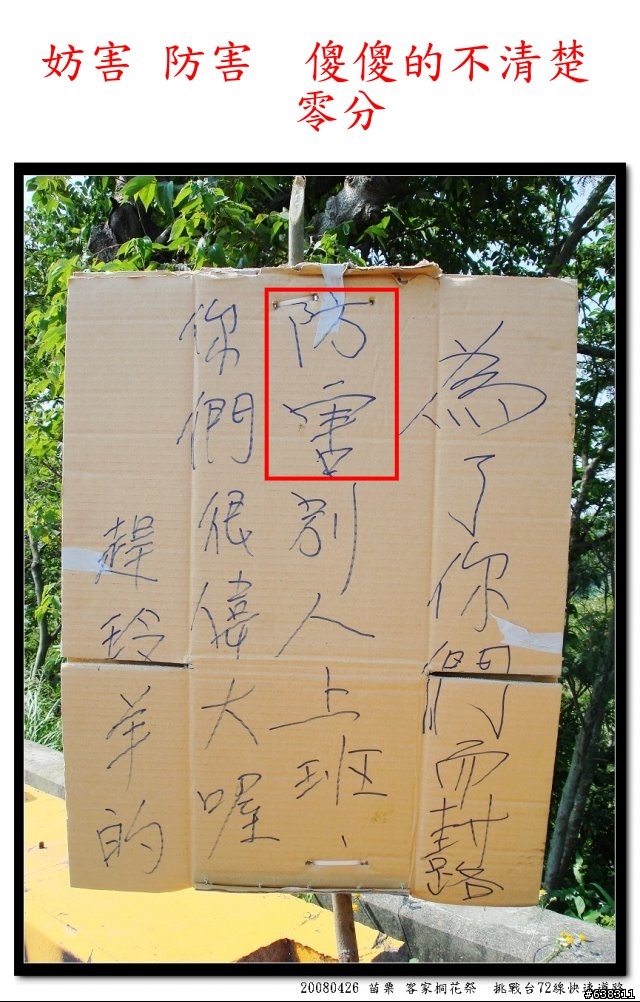 妨害 防害 傻傻的不清楚
零分
為了你們而封路
防害別人上班、
你們很偉大喔
趕玲羊的
20080426 苗栗 客家桐花祭 挑戰台72線快速道路